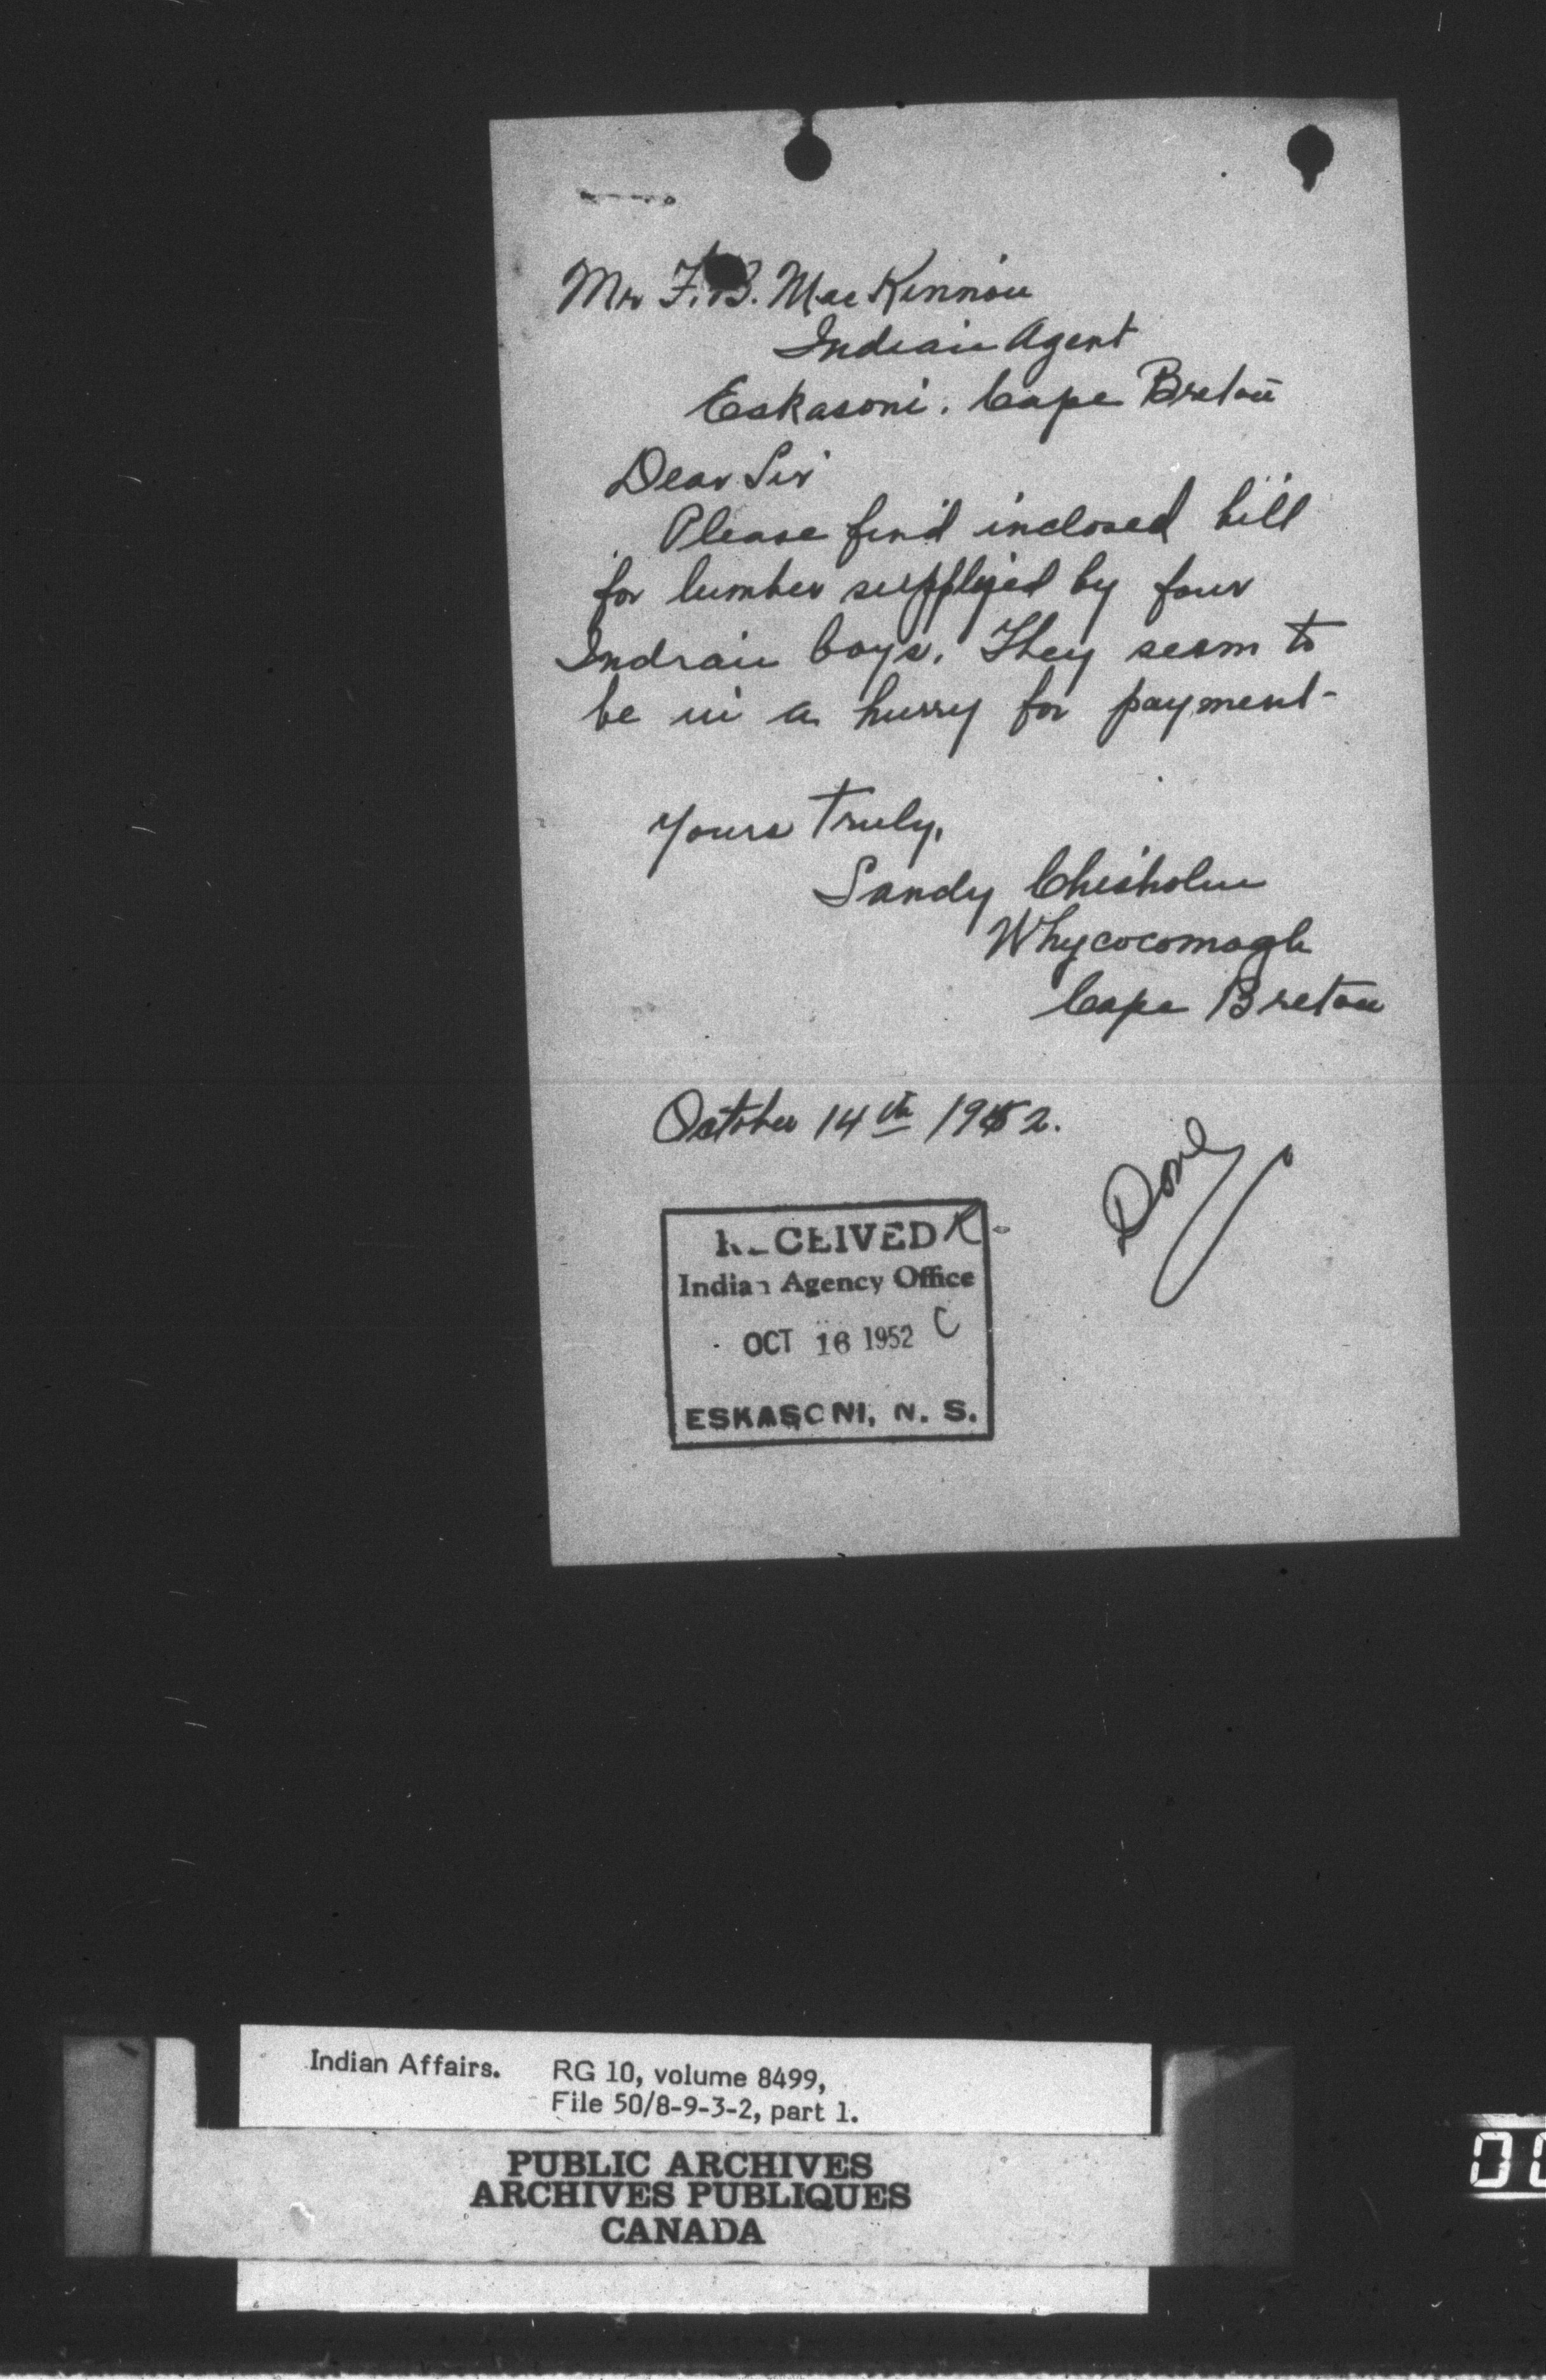 Mr F. B. MacKinnon
Indian Agent
Eskasoni. Cape Breton
Dear Sir
Please find inclosed bill
for lumber supplyed by four
Indian boys. They seem to
be in a hurry for payment-
Yours Truly,
Sandy Chisholm
Whycocomagh
Cape Breton
October 14th 1952.
Done
RECEIVED R
Indian Agency Office
OCT 16 1952 C
ESKASONI, N. S.
Indian Affairs. RG 10, volume 8499,
File 50/8-9-3-2, part 1.
PUBLIC ARCHIVES
ARCHIVES PUBLIQUES
CANADA